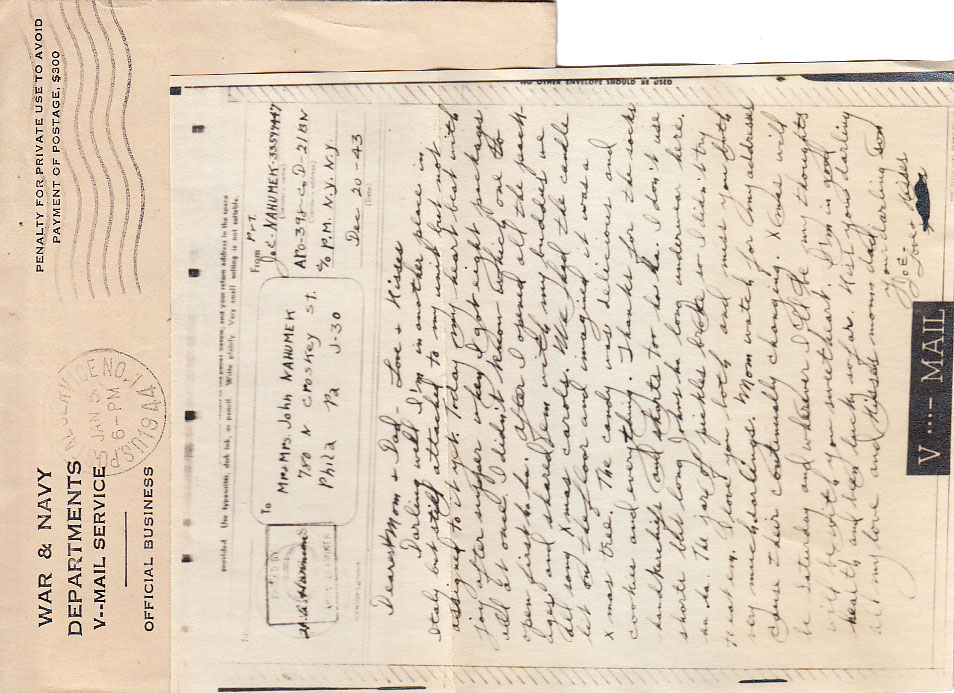 WAR & NAVY
DEPARTMENTS
V--MAIL SERVICE
OFFICIAL BUSINESS
PENALTY FOR PRIVATE USE TO AVOID
PAYMENT OF POSTAGE, $300
JAN 5
6-PM
1944
NO OTHER ENVELOPE SHOULD BE USED
To
Mr & Mrs. John NAHUMEK
780 N CROSKEY ST.
Phila Pa J-30
From
Pvt.
Joe NAHUMEK-33597447
APO-398-Co D-21BN
c/o P.M. N.Y. N.Y.
Dec 20-43
(Date)
Dearest Mom & Dad- Love & Kisses
Darling well I'm in another place in
Italy but still attached to my unit but not
assigned to it yet. Today my heart beat with
joy after supper when I got eight packages
all at once. I didn't know which one to
open first ha. after I opened all the pack-
ages and shared em with my buddies we
all sang Xmas carols. We had the candle
lit on the floor and imagined it was a
xmas tree. The candy was delicious and
cookies and everything. Thanks for the socks
handkerchiefs and shorts too ha ha. I don't use
shorts long Johns ha long underwear here.
ha ha. The jar of pickles broke so I didn't try
to eat em. I love you both and miss you both
very much darlings. Mom watch for my addresses
cause their continually changing. Xmas will
be saturday and wherever I'll be my thoughts
will be with you sweetheart. I'm in good
health and been lucky so far. you darling
all my love and Kisses moms dad
Your darling son
Joe
Love & Kisses
V···– MAIL